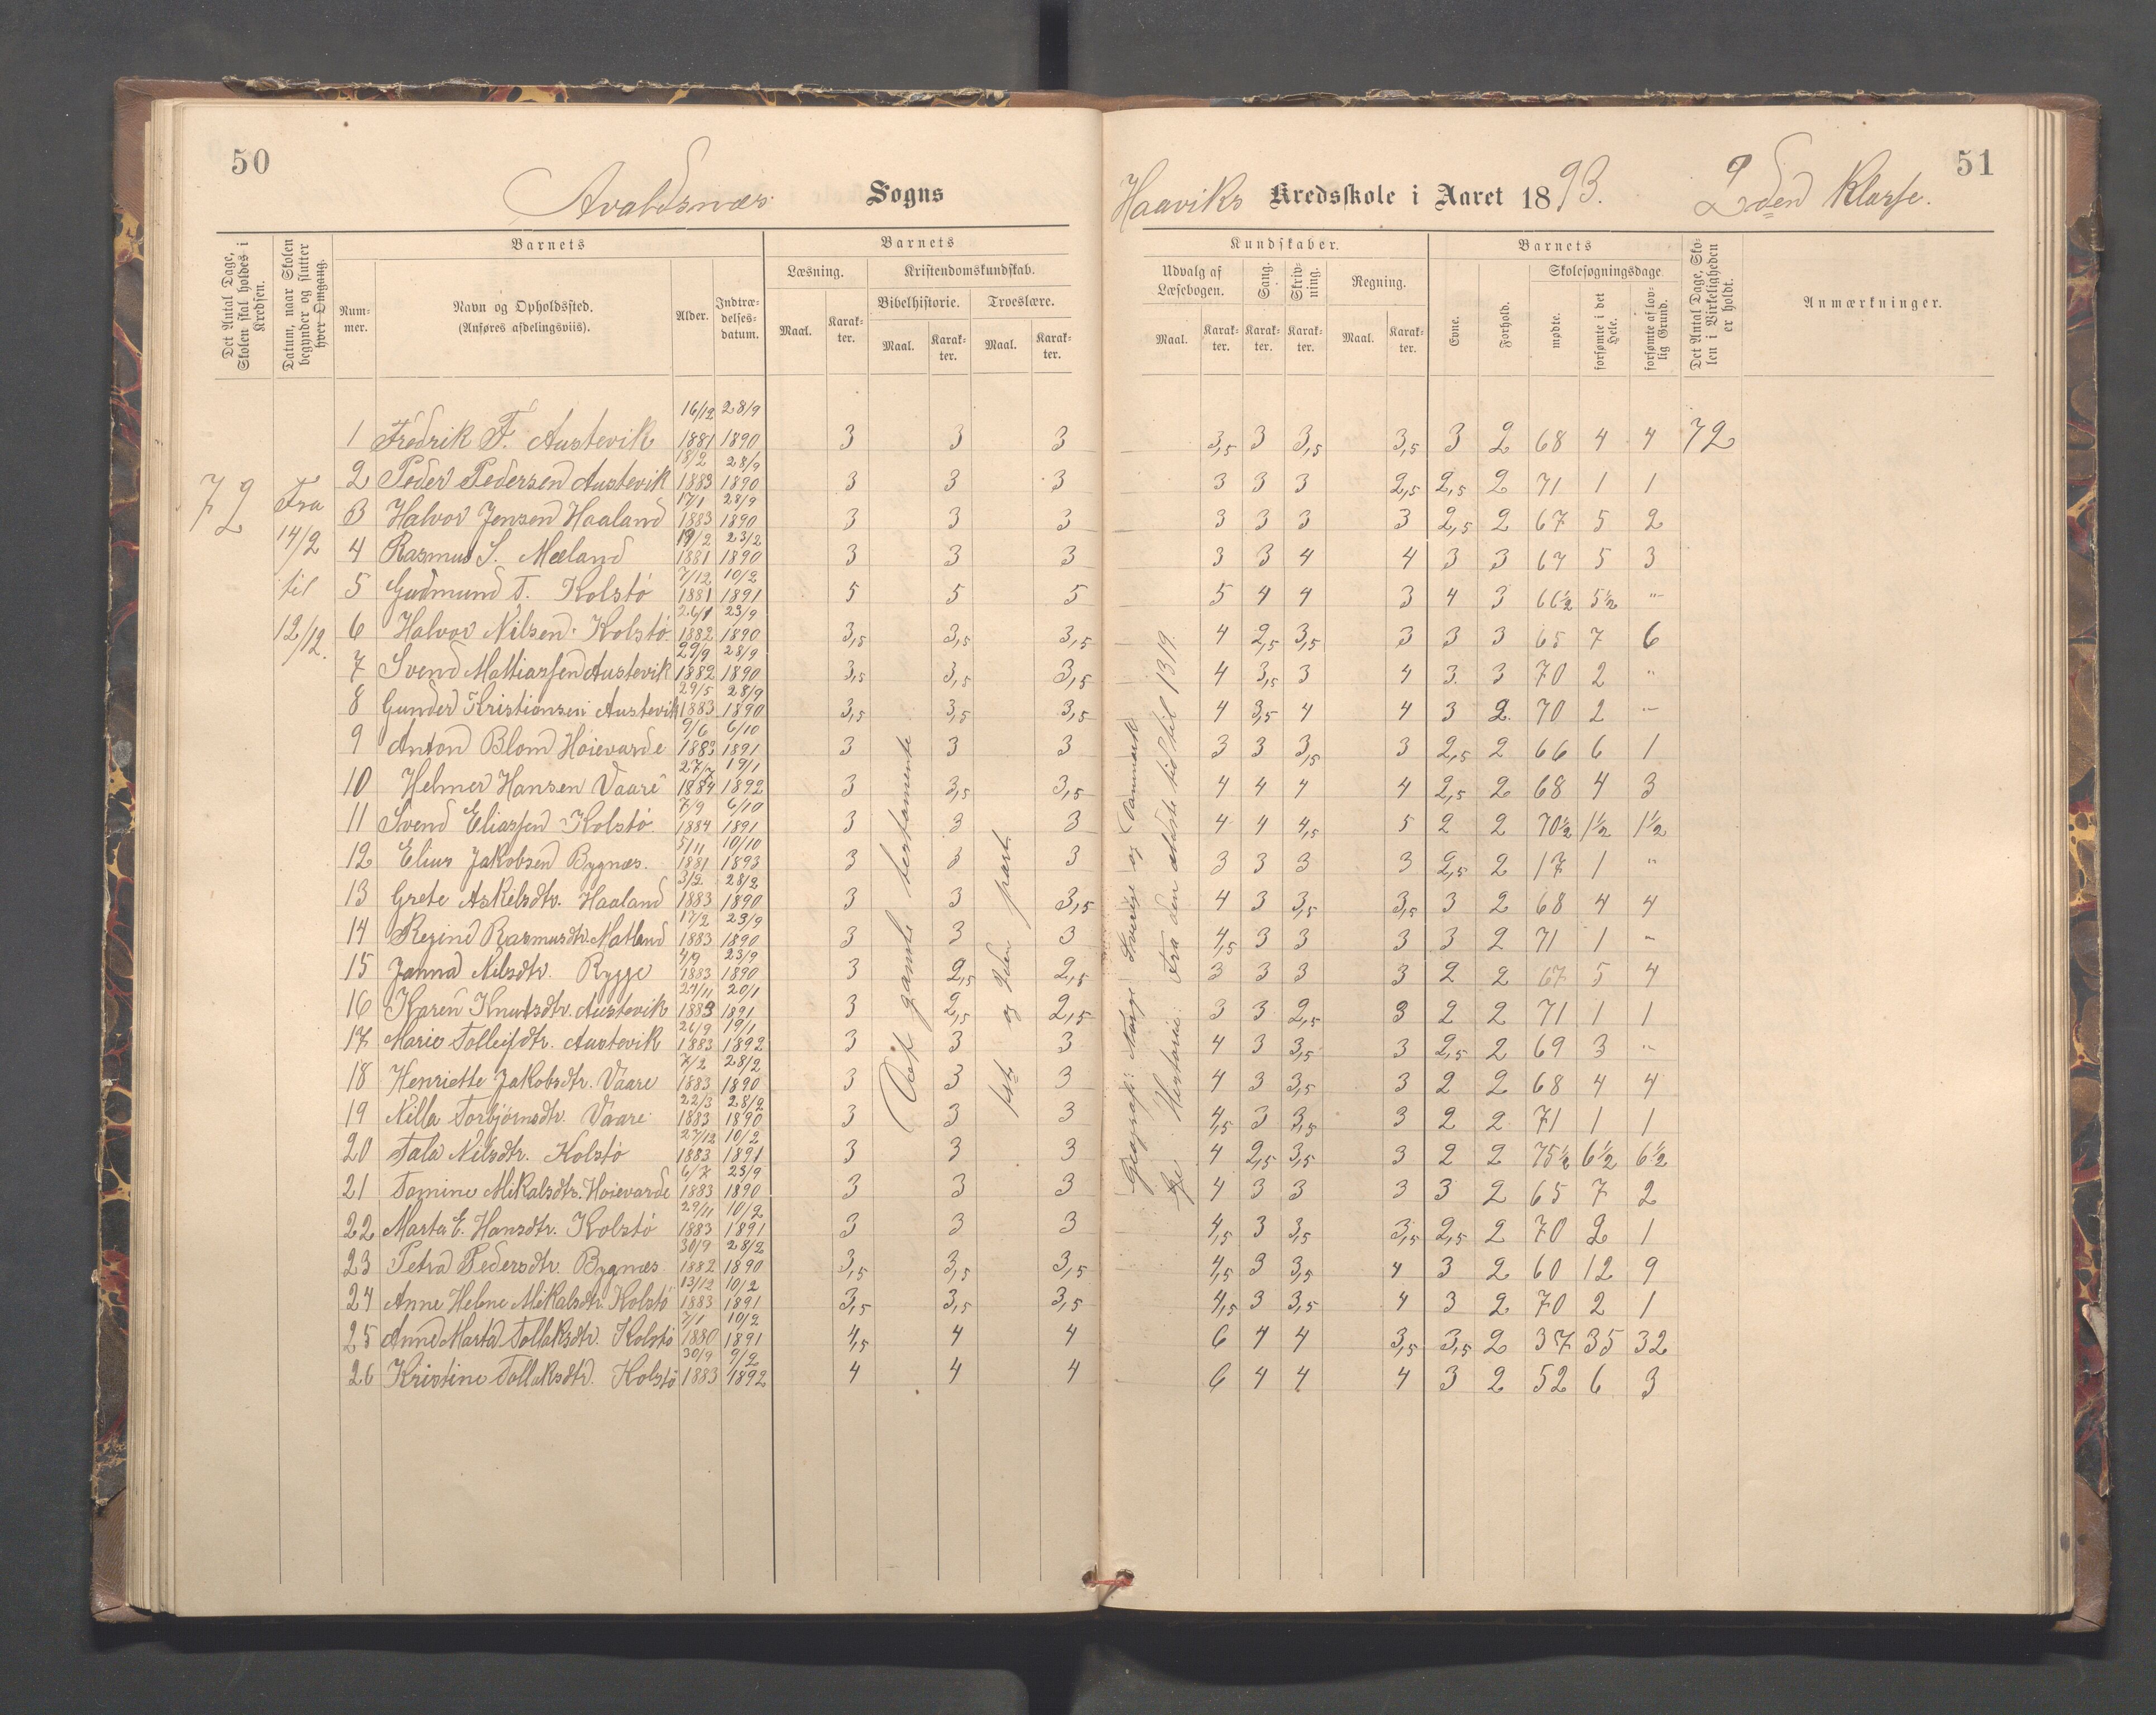 50
Avaldsnæs Sogns
Haaviks Kredsskole i Aaret 1893. 2den Klasse.
51
Det Antal Dage, Skolen skal holdes i Kredsen.
Datum, naar Skolen begynder og slutter hver Omgang.
Barnets
Num-mer.
Navn og Opholdssted.
(Anføres afdelingsviis).
Alder.
Indtræ-delses-datum.
Barnets
Læsning.
Maal.
Karak-ter.
Kristendomskundskab.
Bibelhistorie.
Maal.
Karak-ter.
Troeslære.
Maal.
Karak-ter.
Kundskaber.
Udvalg af Læsebogen.
Maal.
Karak-ter.
Sang.
Karak-ter.
Skriv-ning.
Karak-ter.
Regning.
Maal.
Karak-ter.
Barnets
Evne.
Forhold.
Skolesøgningsdage.
mødte.
forsømte i det Hele.
forsømte af lov-lig Grund.
Det Antal Dage, Sko-len i Virkeligheden er holdt.
Anmærkninger.
72
Fra
14/2
til
12/12.
1 Fredrik F. Austevik 16/12 1881 28/9 1890 3 3 3 3,5 3 3,5 3,5 3 2 68 4 4 72
2 Peder Pedersen Austevik 18/2 1883 28/9 1890 3 3 3 3 3 3 2,5 2,5 2 71 1 1
3 Halvor Jensen Haaland 17/1 1883 28/9 1890 3 3 3 3 3 3 3 2,5 2 67 5 2
4 Rasmus S. Mæland 19/2 1881 23/2 1890 3 3 3 3 3 4 4 3 3 67 5 3
5 Gudmund T. Kolstø 7/12 1881 10/2 1891 5 5 5 5 4 4 3 4 3 66½ 5½ "
6 Halvor Nilsen Kolstø 26/1 1882 23/9 1890 3,5 3,5 3,5 4 2,5 3,5 3 3 3 65 7 6
7 Svend Mattiassen Austevik 29/9 1882 28/9 1890 3,5 3,5 3,5 4 3,5 3 4 3 3 70 2 "
8 Gunder Kristiansen Austevik 29/5 1883 28/9 1890 3,5 3,5 3,5 4 3,5 4 4 3 2 70 2 "
9 Anton Blom Høievarde 9/6 1883 6/10 1891 3 3 3 3 3 3,5 3 2,5 2 66 6 1
10 Helmer Hansen Vaare 27/7 1884 19/1 1892 3 3,5 3,5 4 4 4 4 2,5 2 68 4 3
11 Svend Eliassen Kolstø. 7/9 1884 6/10 1891 3 3 3 4 4 4,5 5 2 2 70½ 1½ 1½
12 Elius Jakobsen Bygnæs. 5/11 1881 10/10 1893 3 3 3 3 3 3 3 2,5 2 17 1 "
13 Grete Askilsdtr. Haaland 3/2 1883 28/2 1890 3 3 3,5 4 3 3,5 3,5 3 2 68 4 4
14 Regine Rasmusdtr. Matland 17/2 1883 23/9 1890 3 3 3 4,5 3 3 3 3 2 71 1 "
15 Janna Nilsdtr. Rygge 4/9 1883 23/9 1890 3 2,5 2,5 3 3 3 3 2 2 67 5 4
16 Karen Knutsdtr. Austevik 29/11 1883 20/1 1891 3 2,5 2,5 3 3 2,5 3 2 2 71 1 1
17 Marie Tolleifsdtr. Austevik 26/9 1883 19/1 1892 3 3 3 4 3 3,5 3 2,5 2 69 3 "
18 Henriette Jakobsdtr. Vaare 7/2 1883 28/2 1890 3 3 3 4 3 3,5 3 2 2 68 4 4
19 Nilla Torbjørnsdtr. Vaare 22/3 1883 28/2 1890 3 3 3 4,5 3 3,5 3 2 2 71 1 1
20 Tala Nilsdtr. Kolstø 27/12 1883 10/2 1891 3 3 3 4 2,5 3,5 3 2 2 75½ 6½ 6½
21 Tomine Mikalsdtr. Høievarde 6/7 1883 23/9 1890 3 3 3 4 3 3 3 3 2 65 7 2
22 Marta E. Hansdtr. Kolstø 29/11 1883 10/2 1891 3 3 3 4,5 3 3,5 3,5 2,5 2 70 2 1
23 Petra Pedersdtr. Bygnæs 30/9 1882 28/2 1890 3,5 3,5 3,5 4,5 3 3,5 4 3 2 60 12 9
24 Anne Helene Mikalsdtr. Kolstø 13/12 1883 10/2 1891 3,5 3,5 3,5 4,5 3 3,5 4 3 2 70 2 1
25 Anne Marta Tollaksdtr. Kolstø 7/1 1880 10/2 1891 4,5 4 4 6 4 4 3,5 3,5 2 37 35 32
26 Kristine Tollaksdtr. Kolstø 30/9 1883 9/2 1892 4 4 4 6 4 4 4 3 2 52 6 3
Det gamle testamente
1ste og 2den part.
Geografi: Norge Sverige og Danmark
Historie: Fra den ældste tid til 1319.